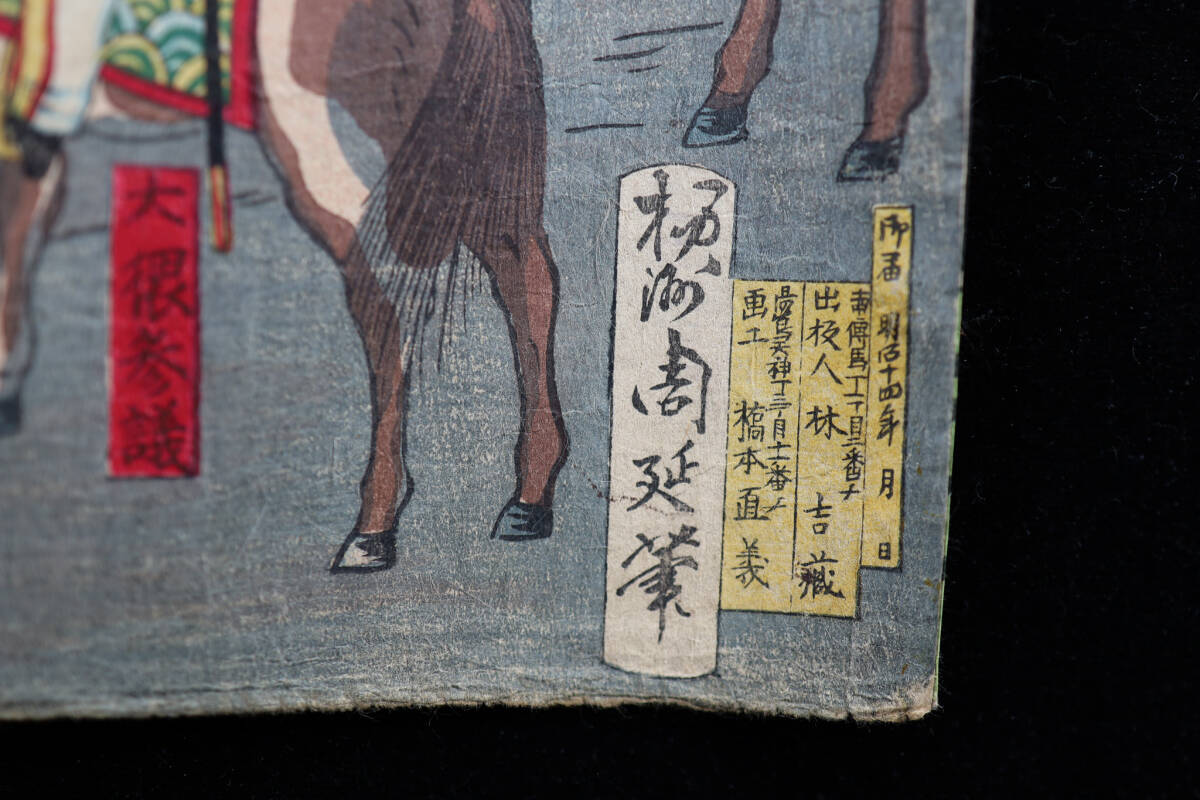 御届 明治十四年 月 日
南傳馬丁一丁目二番チ
出板人 林 吉藏
湯島天神丁三丁目十一番チ
画工 橋本直義
楊洲周延筆
大隈参議